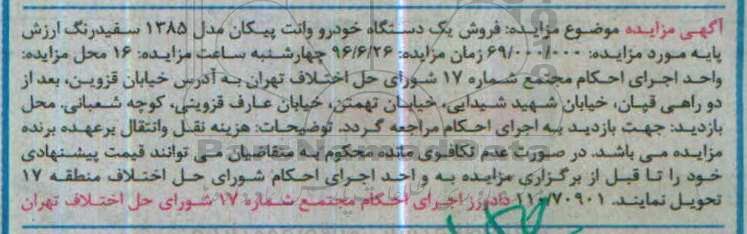 آگهی مزایده موضوع مزایده: فروش یک دستگاه خودرو وانت پیکان مدل ۱۳۸۵ سفیدرنگ ارزش
پایه مورد مزایده: ۶۹/۰۰۰/۰۰۰ زمان مزایده: ۹۶/۶/۲۶ چهارشنبه ساعت مزایده: ۱۶ محل مزایده:
واحد اجرای احکام مجتمع شماره ۱۷ شورای حل اختلاف تهران به آدرس خیابان قزوین، بعد از
دو راهی قپان، خیابان شهید شیدایی، خیابان تهمتن، خیابان عارف قزوینی، کوچه شعبانی. محل
بازدید: جهت بازدید به اجرای احکام مراجعه گردد. توضیحات: هزینه نقل وانتقال برعهده برنده
مزایده می باشد. در صورت عدم تکافوی مانده محکوم به متقاضیان می توانند قیمت پیشنهادی
خود را تا قبل از برگزاری مزایده به واحد اجرای احکام شورای حل اختلاف منطقه ۱۷
تحویل نمایند. ۱۱۰/۷۰۹۰۱ دادورز اجرای احکام مجتمع شماره ۱۷ شورای حل اختلاف تهران